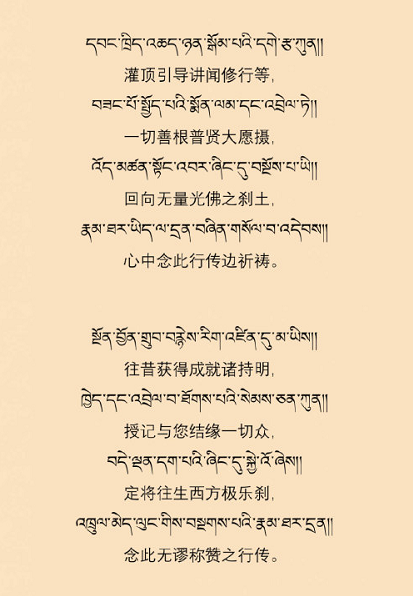 དབང་ཁྲིད་འཆད་ཉན་སྒོམ་པའི་དགེ་རྩ་ཀུན།།
灌顶引导讲闻修行等，
བཟང་པོ་སྤྱོད་པའི་སྨོན་ལམ་དང་འབྲེལ་ཏེ།།
一切善根普贤大愿摄，
འོད་མཚན་སྟོང་འབར་ཞིང་དུ་བསྔོས་པ་ཡི།།
回向无量光佛之刹土，
རྣམ་ཐར་ཡིད་ལ་དྲན་བཞིན་གསོལ་བ་འདེབས།།
心中念此行传边祈祷。
སྔོན་བྱོན་གྲུབ་བརྙེས་རིག་འཛིན་དུ་མ་ཡིས།།
往昔获得成就诸持明，
ཁྱེད་དང་འབྲེལ་བ་ཐོགས་པའི་སེམས་ཅན་ཀུན།།
授记与您结缘一切众，
བདེ་ལྡན་དག་པའི་ཞིང་དུ་སྐྱེ་འོ་ཞེས།།
定将往生西方极乐刹，
འཁྲུལ་མེད་ལུང་གིས་བསྔགས་པའི་རྣམ་ཐར་དྲན།།
念此无谬称赞之行传。